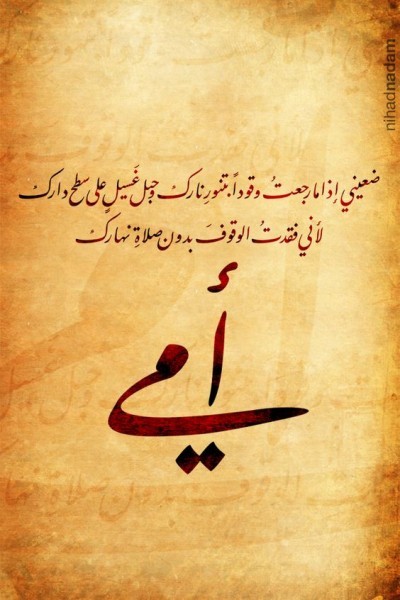 ضعيني إذا ما رجعتُ وقوداً بتنورِ ناركِ وحبل غَسيلٍ على سطح داركِ
لأني فقدتُ الوقوفَ بدون صلاةِ نهاركِ
أمي
nihadnadam